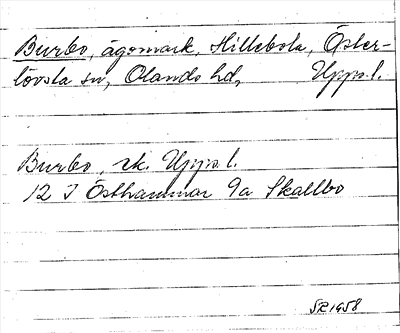 Burbo, ägomark, Hillebola, Öster-
lövsta sn, Olands hd, Upps.l.
Burbo, rk. Upps.l.
12 I Östhammar 9a Skallbo
SR 1958